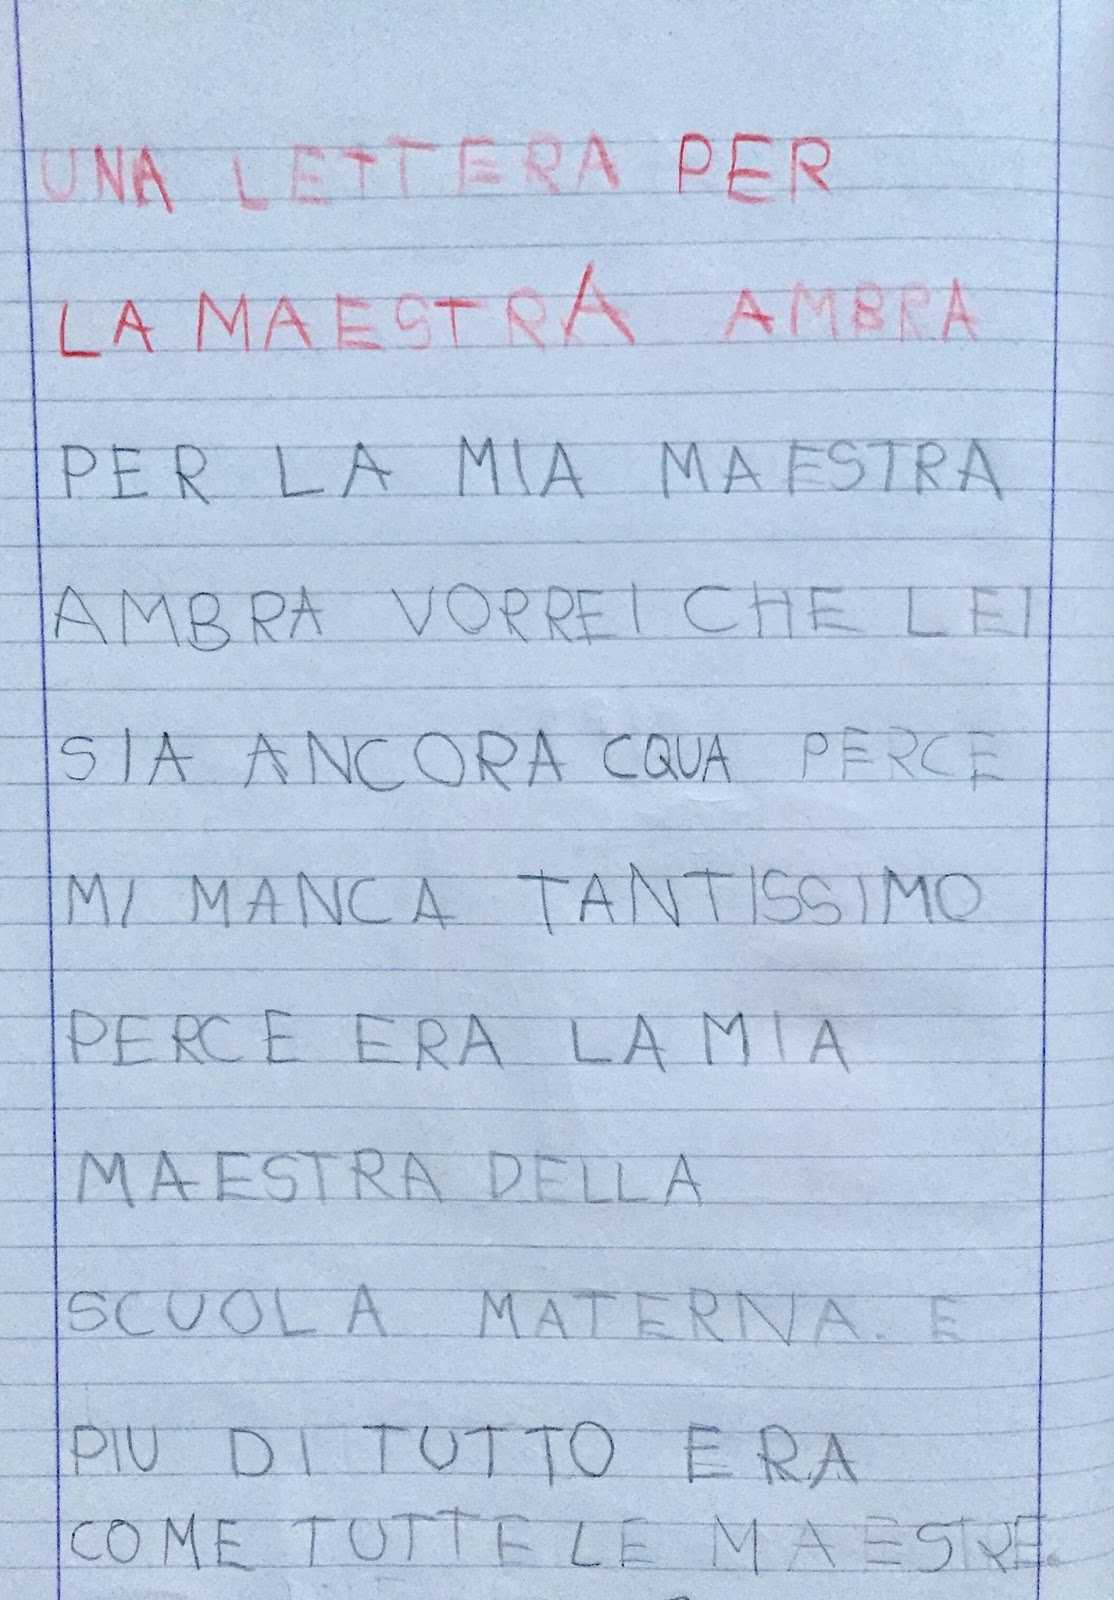 UNA LETTERA PER
LA MAESTRA AMBRA
PER LA MIA MAESTRA
AMBRA VORREI CHE LEI
SIA ANCORA CQUA PERCE
MI MANCA TANTISSIMO
PERCE ERA LA MIA
MAESTRA DELLA
SCUOLA MATERNA. E
PIU DI TUTTO ERA
COME TUTTE LE MAESTRE.